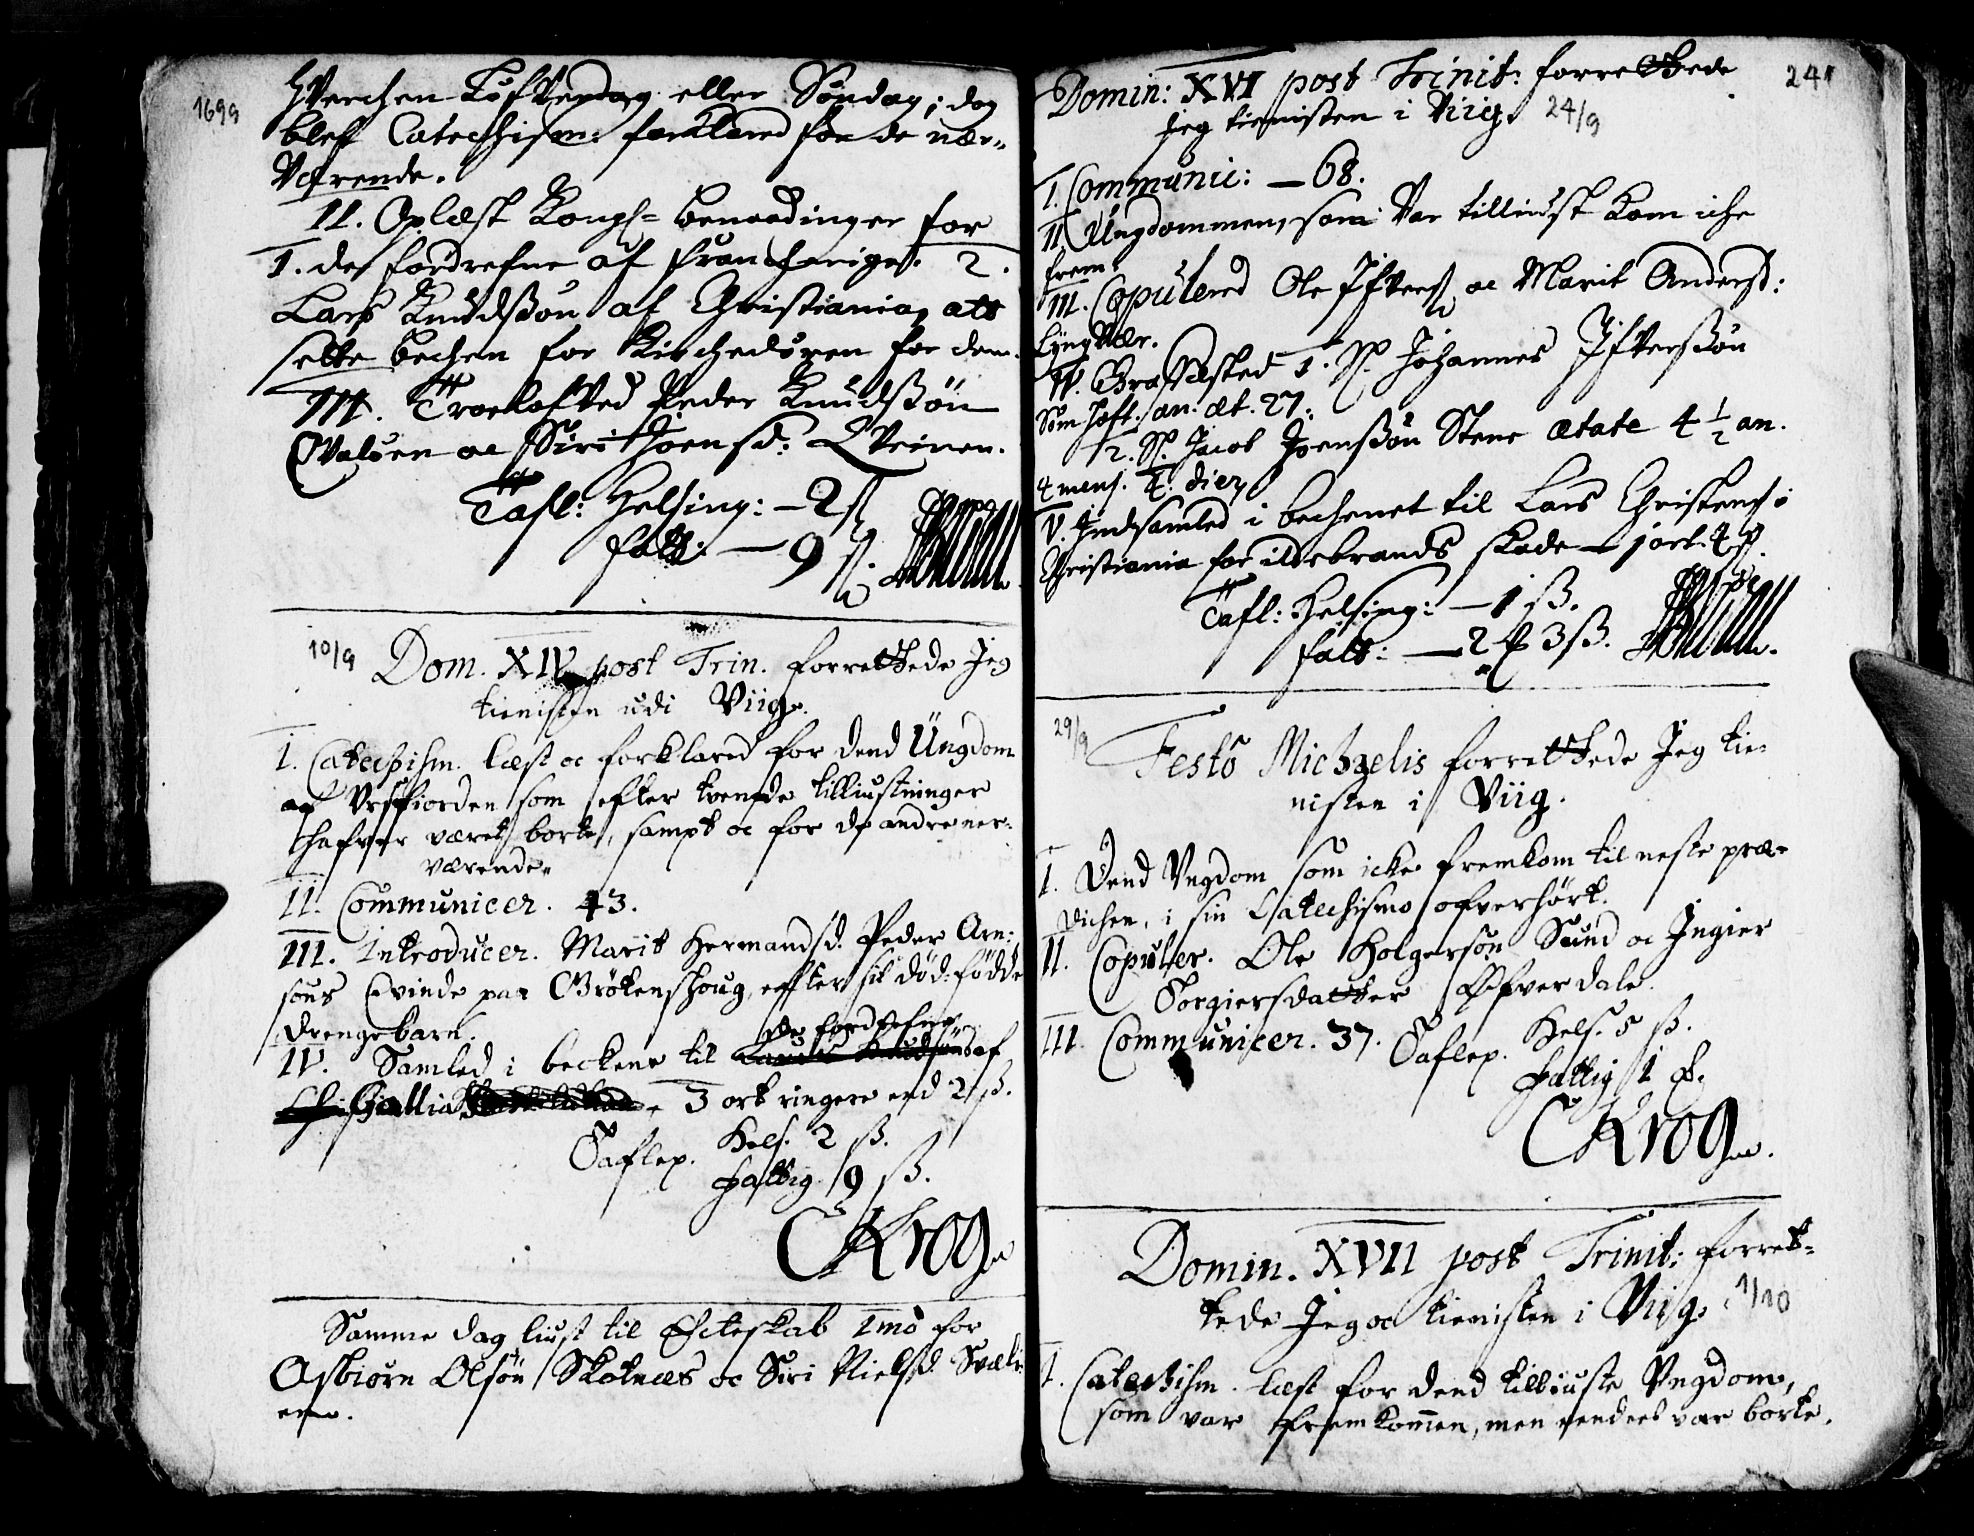 1699
hverchen Løfverdag eller Søndag; dog
blef Catechism: forklared for de nær-
værende.
II. Oplæst Kongl- benaadinger for
1. de fordrefne af Franckerige. 2.
Lars Knudssøn af Christiania, att
sette bechen for Kirchedøren for dem.
III. Troelofved Peder Knudssøn
Qvaløen oc Siri Joensd:
Tafl: Helsing: – 2 ß
fatt: – 9 ß.
10/9 Dom. XIV post Trin. forrettede Jeg
tienisten udi Viig.
I. Catechism. læst oc forklared for dend Ungdom
af Ursfiorden som efter tvende tilliusninger
hafver været borte, sampt oc for de andre ner-
værende.
II. Communicer. 43.
III. Introducer. Marit Hermandsd. Peder Arn-
søns Qvinde paa Grøtenshoug, effter sit død-fødde
drengebarn.
IV. Samled i beckene til de fordrefne af
Gallia 3 ort ringere end 2 ß.
Taflep. Hels. 2 ß.
Fattig. 9 ß.
CKrog
Samme dag liust til Ecteskab 1mo for
Asbiørn Olsøn Skotnæs oc Siri Nielsd. Svæle-
ene.
241
Domin: XVI post Trinit: forrettede
jeg tienisten i Viig. 24/9
I. Communic: – 68.
II. Ungdommen, som var tilliust kom iche
frem.
III. Copulered Ole Ifvers. oc Marit Andersd:
Lyngvær.
IV. Græsfæsted 1. S. Johannes Ifverssøn
Sømhoft. an. æt. 27.
2. S. Jacob Joenssøn Stene ætate 4 1/2 an.
4 mens. 4 dier
V. Indsamled i bechenet til Lars Christens. i
Christiania for ildebrands skade – 1 ort. 4 ß.
Tafl: Helsing: – 1 ß.
fatt: – 2 3 ß.
29/9
Festo Michaelis forrettede Jeg tie-
nisten i Viig.
I. Dend Ungdom som icke fremkom til neste præ-
dichen, i sin Catechismo ofverhørt.
II. Copuler. Ole Holgersøn Sund oc Ingier
Torgiersdatter Øfverdale.
III. Communicer. 37. Taflep. Hels. 5 ß.
Fattig 1
CKrog
Domin. XVII post Trinit: forret-
tede Jeg oc tienisten i Viig. 1/10
I. Catechism. læst for dend tilliuste Ungdom,
som var fremkommen, men eendeel var borte.